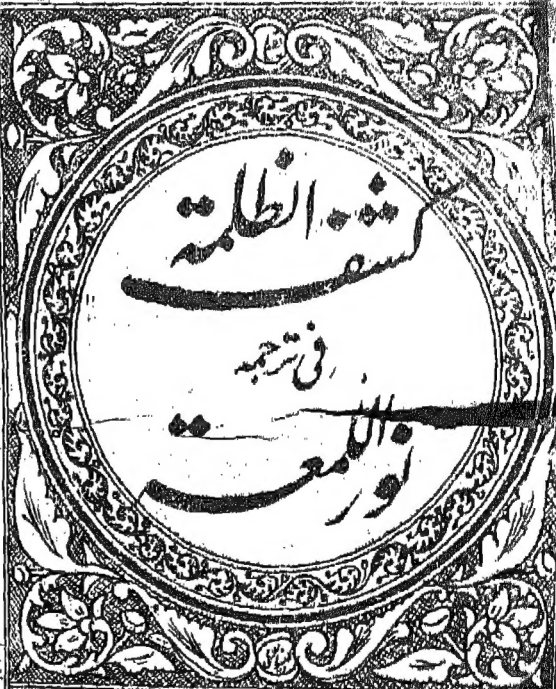 كشف الظلمة
فی ترجمه
نور اللمعت